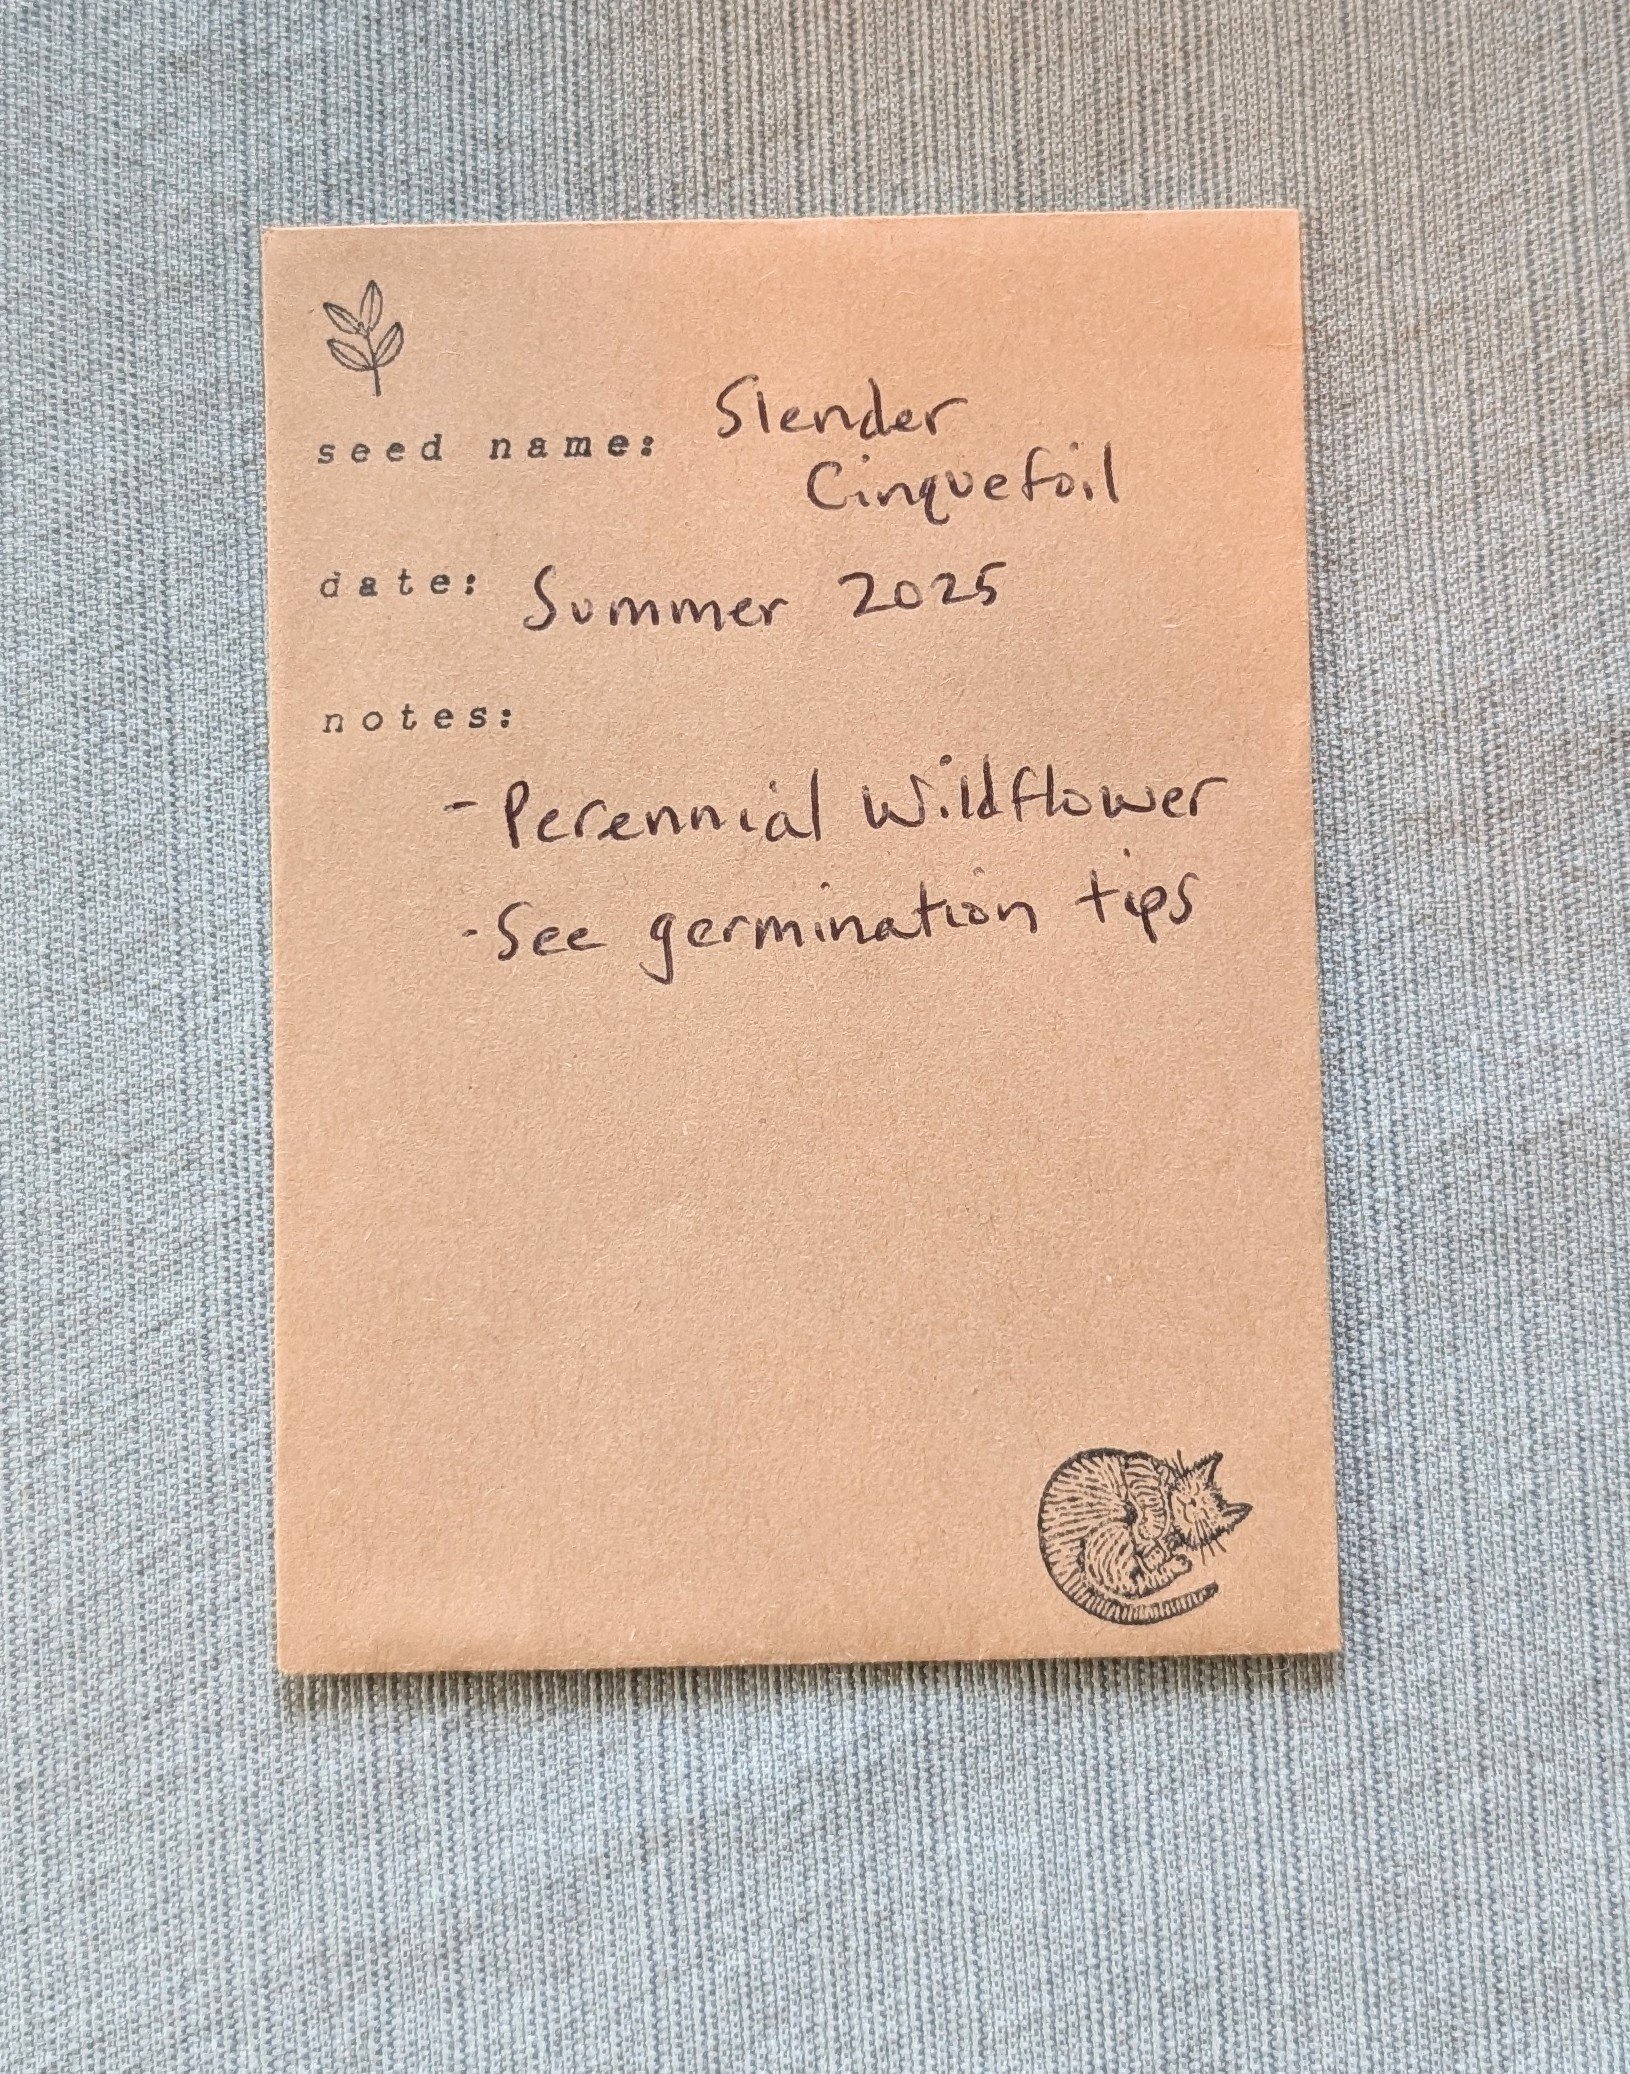 seed name: Slender
Cinquefoil
date: Summer 2025
notes:
- Perennial Wildflower
- See germination tips